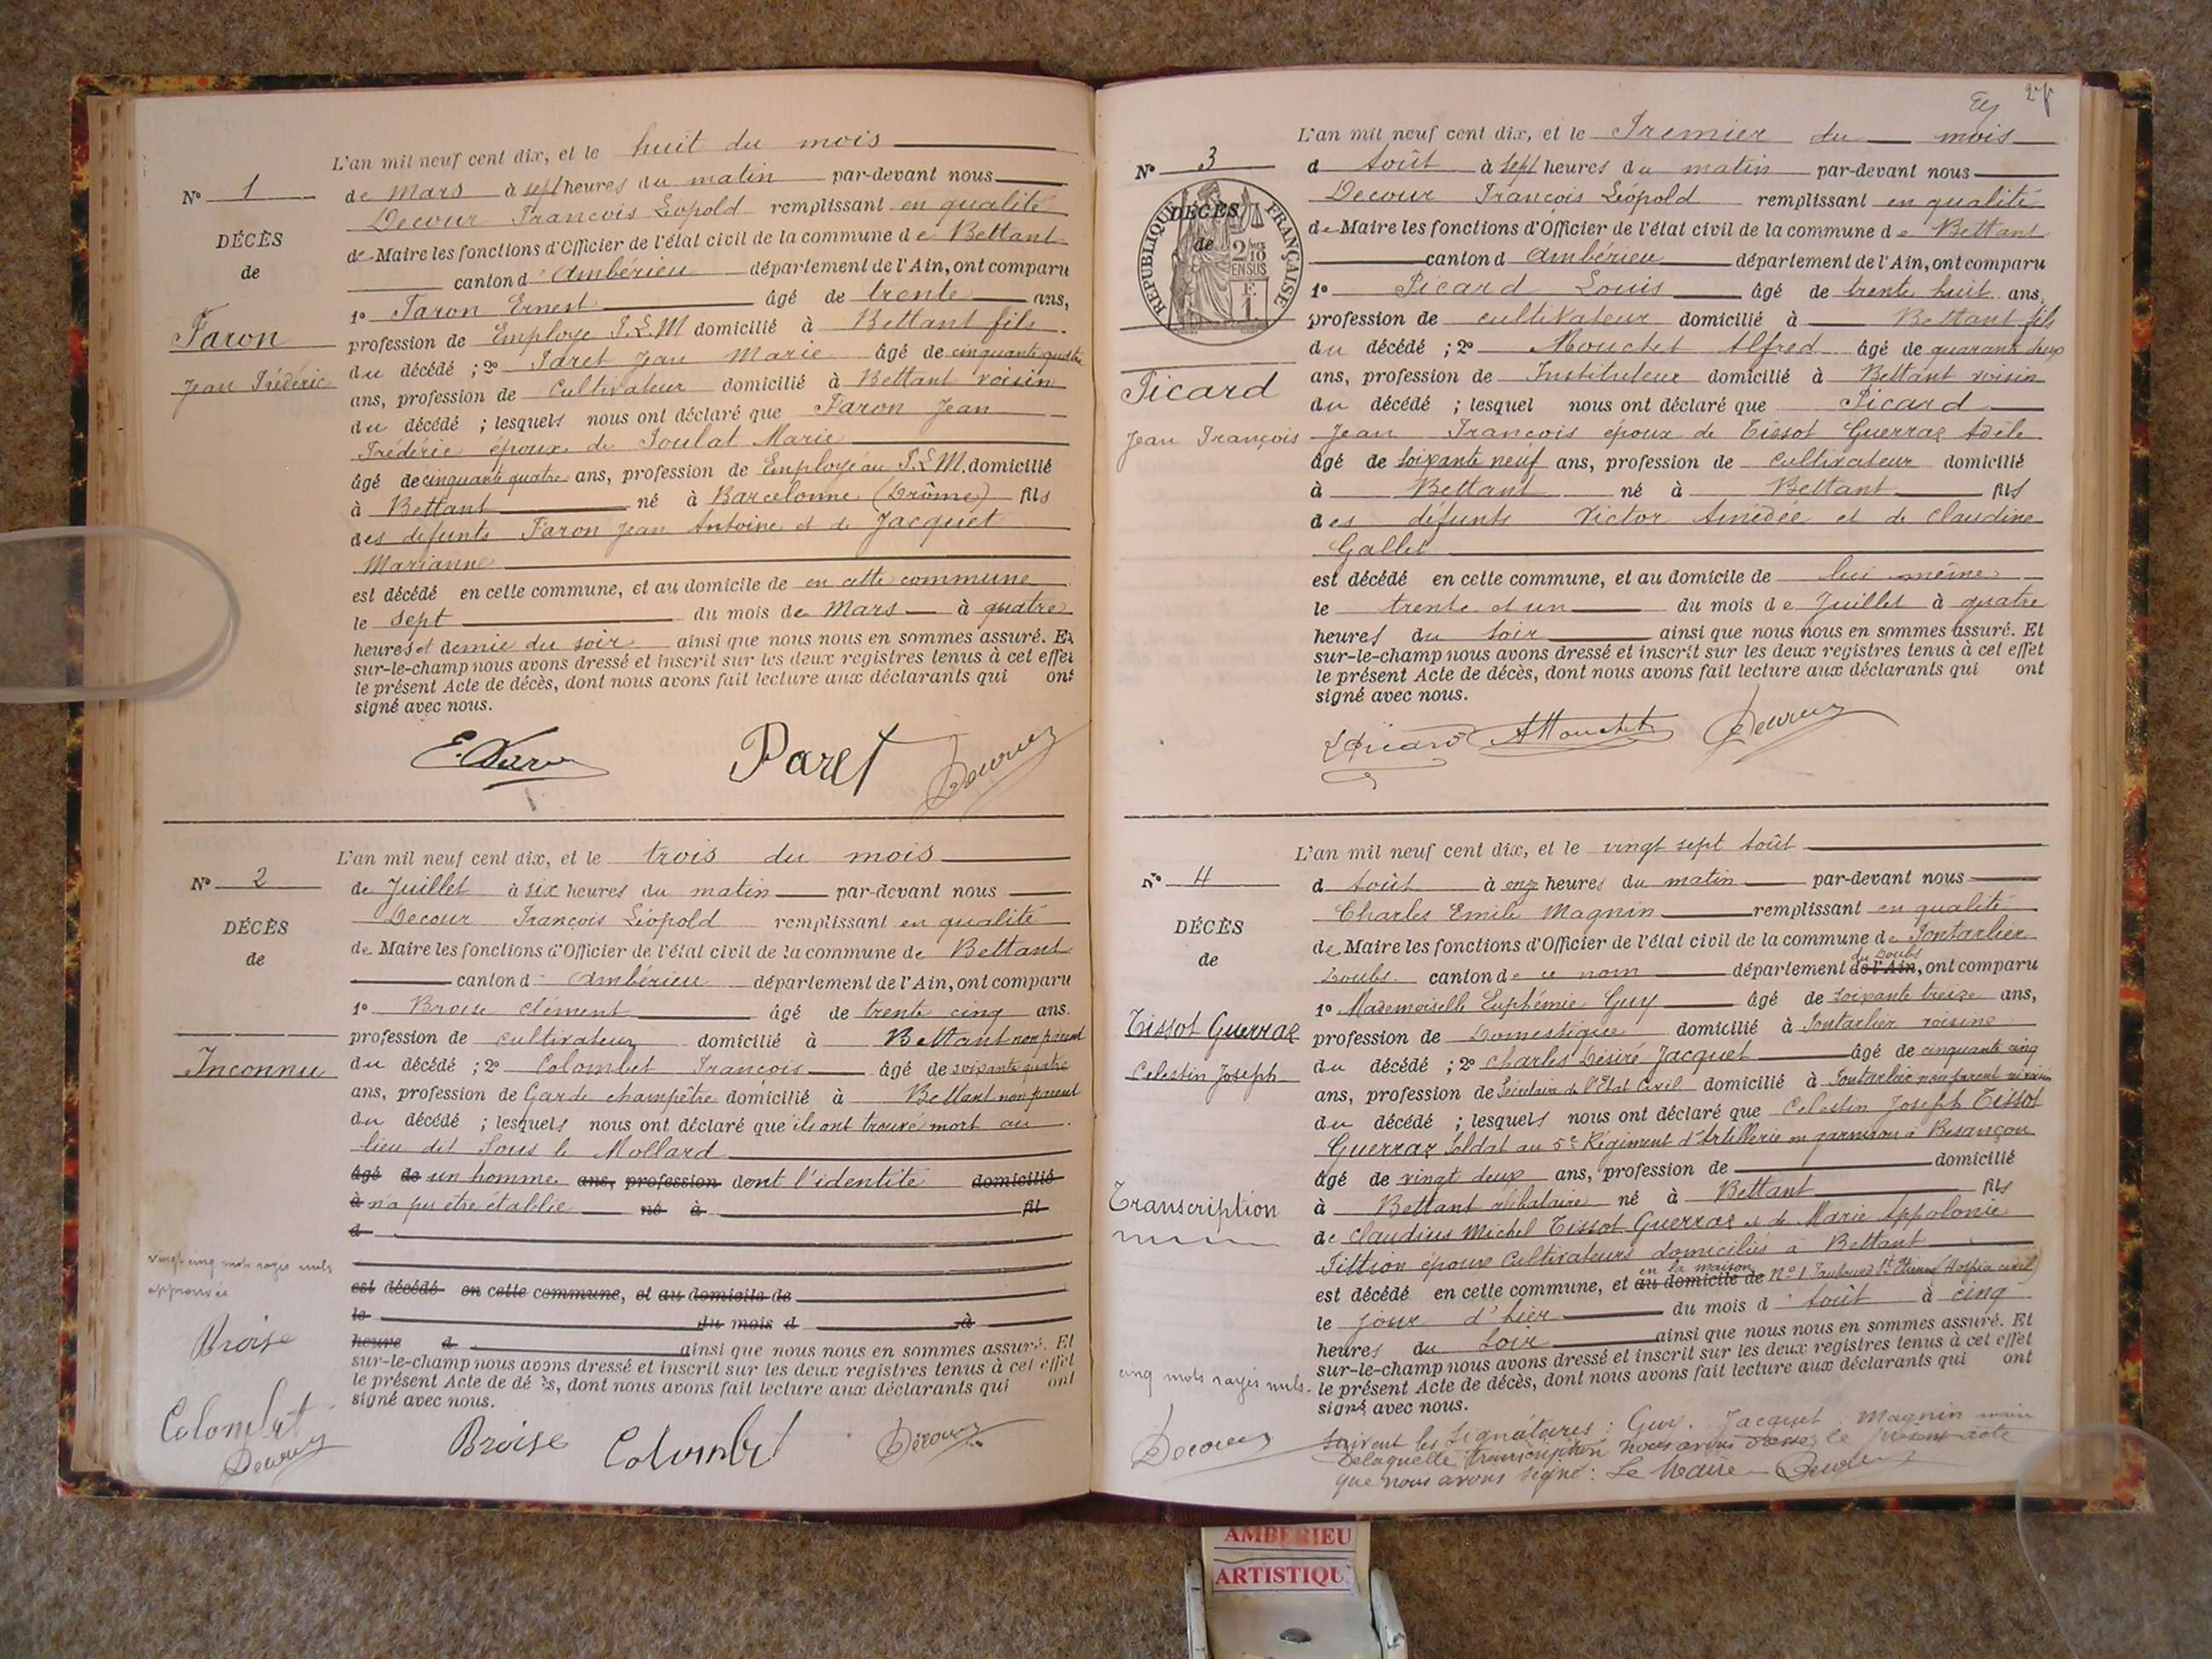 L'an mil neuf cent dix, et le huit du mois
N° 1
de Mars à sept heures du matin par-devant nous
Decour François Léopold remplissant en qualité
DÉCÈS
de Maire les fonctions d'Officier de l'état civil de la commune de Bettant
de
canton d'Ambérieu département de l'Ain, ont comparu
1° Faron Ernest âgé de trente ans,
Faron
profession de Employé P.L.M domicilié à Bettant fils
du décédé ; 2° Paret Jean Marie âgé de cinquante quatre
Jean Frédéric
ans, profession de Cultivateur domicilié à Bettant voisin
du décédé ; lesquels nous ont déclaré que Faron Jean
Frédéric époux de Poulat Marie
âgé de cinquante quatre ans, profession de Employé au P.L.M. domicilié
à Bettant né à Barcelonne (Drôme) fils
des défunts Faron Jean Antoine et de Jacquet
Marianne
est décédé en cette commune, et au domicile de en cette commune
le sept du mois de Mars à quatre
heures et demie du soir ainsi que nous nous en sommes assuré. Et
sur-le-champ nous avons dressé et inscrit sur les deux registres tenus à cet effet
le présent Acte de décès, dont nous avons fait lecture aux déclarants qui ont
signé avec nous.
Paret Decour
L'an mil neuf cent dix, et le trois du mois
N° 2
de Juillet à six heures du matin par-devant nous
Decour François Léopold remplissant en qualité
DÉCÈS
de Maire les fonctions d'Officier de l'état civil de la commune de Bettant
de
canton d'Ambérieu département de l'Ain, ont comparu
1° Broise Clément âgé de trente cinq ans.
profession de cultivateur domicilié à Bettant non parent
Inconnu
du décédé ; 2° Colombet François âgé de soixante quatre
ans, profession de Garde champêtre domicilié à Bettant non parent
du décédé ; lesquels nous ont déclaré que ils ont trouvé mort au
lieu dit Sous le Mollard
âgé de un homme ans, profession dont l'identité domicilié
à n'a pu être établie né à fil
d
vingt-cinq mots rayés nuls
approuvés
est décédé en cette commune, et au domicile de
le du mois d à
Broise
heure d ainsi que nous nous en sommes assuré. Et
sur-le-champ nous avons dressé et inscrit sur les deux registres tenus à cet effet
le présent Acte de décès, dont nous avons fait lecture aux déclarants qui ont
signé avec nous.
Colombet
Decour
Broise Colombet Decour
27
L'an mil neuf cent dix, et le Premier du mois
N° 3
d Août à sept heures du matin par-devant nous
Decour François Léopold remplissant en qualité
RÉPUBLIQUE FRANÇAISE
2/10 EN SUS
DÉCÈS
de Maire les fonctions d'Officier de l'état civil de la commune de Bettant
de
canton d'Ambérieu département de l'Ain, ont comparu
1° Picard Louis âgé de trente huit ans,
profession de cultivateur domicilié à Bettant fils
du décédé ; 2° Mouchet Alfred âgé de quarante deux
Picard
ans, profession de Instituteur domicilié à Bettant voisin
du décédé ; lesquel nous ont déclaré que Picard
Jean François
Jean François époux de Tissot Guerraz Adèle
âgé de soixante neuf ans, profession de cultivateur domicilié
à Bettant né à Bettant fils
des défunts Victor Amédée et de Claudine
Gallet
est décédé en cette commune, et au domicile de lui même
le trente et un du mois de Juillet à quatre
heures du soir ainsi que nous nous en sommes assuré. Et
sur-le-champ nous avons dressé et inscrit sur les deux registres tenus à cet effet
le présent Acte de décès, dont nous avons fait lecture aux déclarants qui ont
signé avec nous.
L Picard AMouchet Decour
L'an mil neuf cent dix, et le vingt sept Août
N° 4
d Août à onze heures du matin par-devant nous
Charles Emile Magnin remplissant en qualité
DÉCÈS
de Maire les fonctions d'Officier de l'état civil de la commune de Pontarlier
de
Doubs. canton de ce nom département de l'Ain, du Doubs ont comparu
1° Mademoiselle Euphémie Guy âgé de soixante treize ans,
Tissot Guerraz
profession de Domestique domicilié à Pontarlier voisine
du décédé ; 2° Charles Désiré Jacquet âgé de cinquante cinq
Celestin Joseph
ans, profession de Secrétaire de l'Etat Civil domicilié à Pontarlier non parent ni voisin
du décédé ; lesquels nous ont déclaré que Celestin Joseph Tissot
Guerraz Soldat au 5e Régiment d'Artillerie en garnison à Besançon
âgé de vingt deux ans, profession de domicilié
Transcription
à Bettant célibataire né à Bettant fils
de Claudius Michel Tissot Guerraz et de Marie Appolonie
Tittion époux Cultivateurs domiciliés à Bettant
est décédé en cette commune, et au domicile de en la maison N° 1 Faubourg St Etienne (Hospice civil)
le jour d'hier du mois d'Août à cinq
heures du soir ainsi que nous nous en sommes assuré. Et
sur-le-champ nous avons dressé et inscrit sur les deux registres tenus à cet effet
cinq mots rayés nuls.
le présent Acte de décès, dont nous avons fait lecture aux déclarants qui ont
signé avec nous.
Decour
Suivent les signatures : Guy. Jacquet. Magnin maire
Delaquelle transcription nous avons dressé le présent acte
que nous avons signé : Le Maire Decour
AMBERIEU
ARTISTIQU